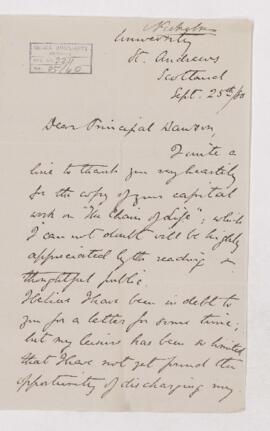 Nicholson
University
St. Andrews
Scotland
Sept. 25th/80
Dear Principal Dawson,
I write a
line to thank you very heartily
for the copy of your capital
work on "The Chain of Life"; which
I can not doubt will be highly
appreciated by the reading &
thoughtful public.
I believe I have been in debt to
you for a letter for some time;
but my leisure has been so limited
that I have not yet found the
opportunity of discharging my